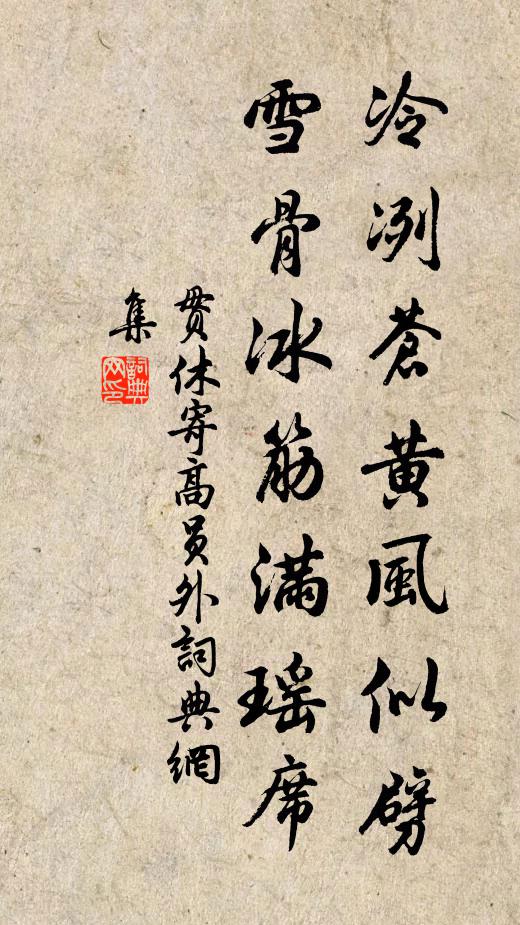 冷冽蒼黃風似劈
雪骨冰筋滿瑤席
貫休寄高員外詞典網
集
詞典
网印